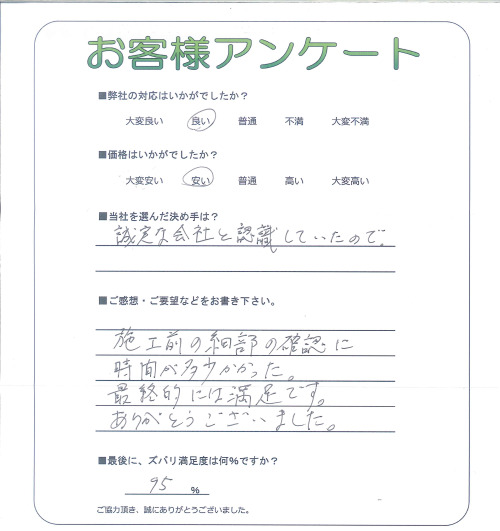 お客様アンケート
■弊社の対応はいかがでしたか？
大変良い 良い 普通 不満 大変不満
■価格はいかがでしたか？
大変安い 安い 普通 高い 大変高い
■当社を選んだ決め手は？
誠実な会社と認識していたので。
■ご感想・ご要望などをお書き下さい。
施工前の細部の確認に
時間が多少かかった。
最終的には満足です。
ありがとうございました。
■最後に、ズバリ満足度は何%ですか？
95 %
ご協力頂き、誠にありがとうございました。